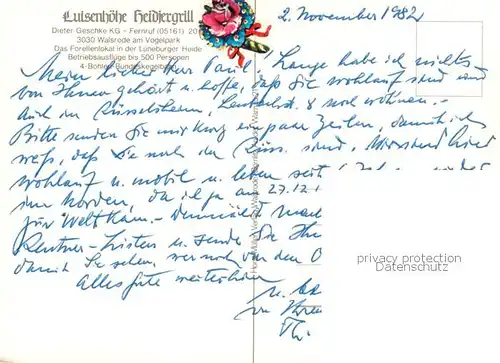 Luisenhöhe Heidjergrill
Dieter Geschke KG - Fernruf (05161) 20
3030 Walsrode am Vogelpark
Das Forellenlokal in der Lüneburger Heide
Betriebsausflüge bis 500 Personen
4-Bohlen-Bundeskegelbahn
2. November 1982
Mein lieber Herr Paul, lange habe ich nichts
von Ihnen gehört u. hoffe, daß Sie wohlauf sind und
auch in Rüsselsheim, 8 noch wohnen.-
Bitte senden Sie mir kurz ein paar Zeilen, damit ich
weiß, daß Sie noch in Rüss. sind. Wir sind hier
wohlauf u. mobil u. leben seit
im Norden, da ich ja am 27.12.1
zur Welt kam.-
Rentner-Listen u. sende Sie Ihn
damit Sie sehen, wer noch von den O
Alles gute weiterhin
u.
von Ihrem
privacy protection
Datenschutz